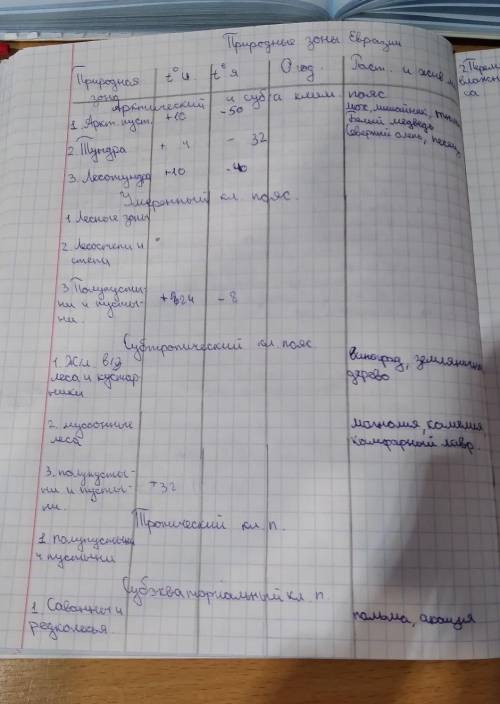 Природные зоны Евразии
Природная зона t° и. t° я О год. Раст. и жив м.
Арктический и суба клим. пояс
1. Аркт. пуст. +10 -50 мох, лишайник,
Белый медведь
2. Тундра + 4 - 32 Северный олень, песец
3. Лесотундра +10 -40
Умеренный кл. пояс.
1 Лесные зоны
2. Лесостепи и
степи
3 Полупусты-
ни и пусты- +24 - 8
ни.
Субтропический кл. пояс
1. Ж/л. в/з виноград, земляничное
леса и кустар- дерево
ники
2. муссонные магнолия, камелия,
леса камфарный лавр.
3. полупусты-
ни и пусты- +32
ни.
Тропический кл. п.
1. полупустыни
и пустыни
Субэкваториальный кл. п
1. Саванны и пальма, акация
редколесья.
2. Перем
влажн
са